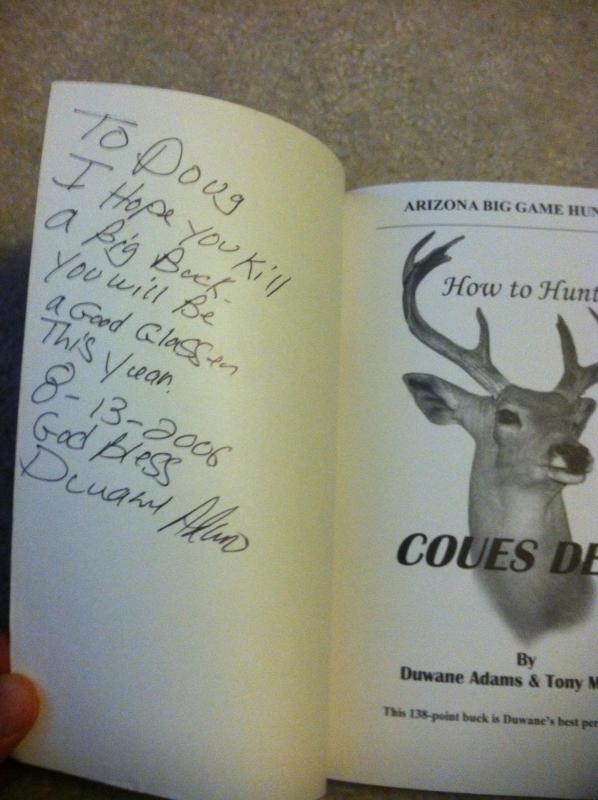 To Doug
I Hope you Kill
a Big Buck-
you will Be
a Good Glasser
This Year.
8-13-2006
God Bless
Duwane Adams
ARIZONA BIG GAME HUN
How to Hunt
COUES DE
By
Duwane Adams & Tony M
This 138-point buck is Duwane's best per